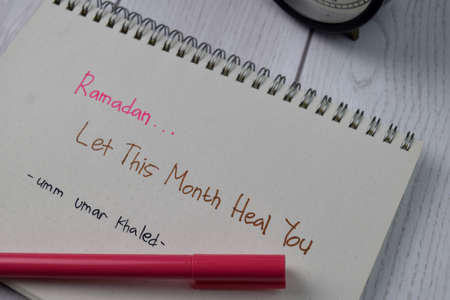 Ramadan...
Let This Month Heal You
-umm umar khaled-